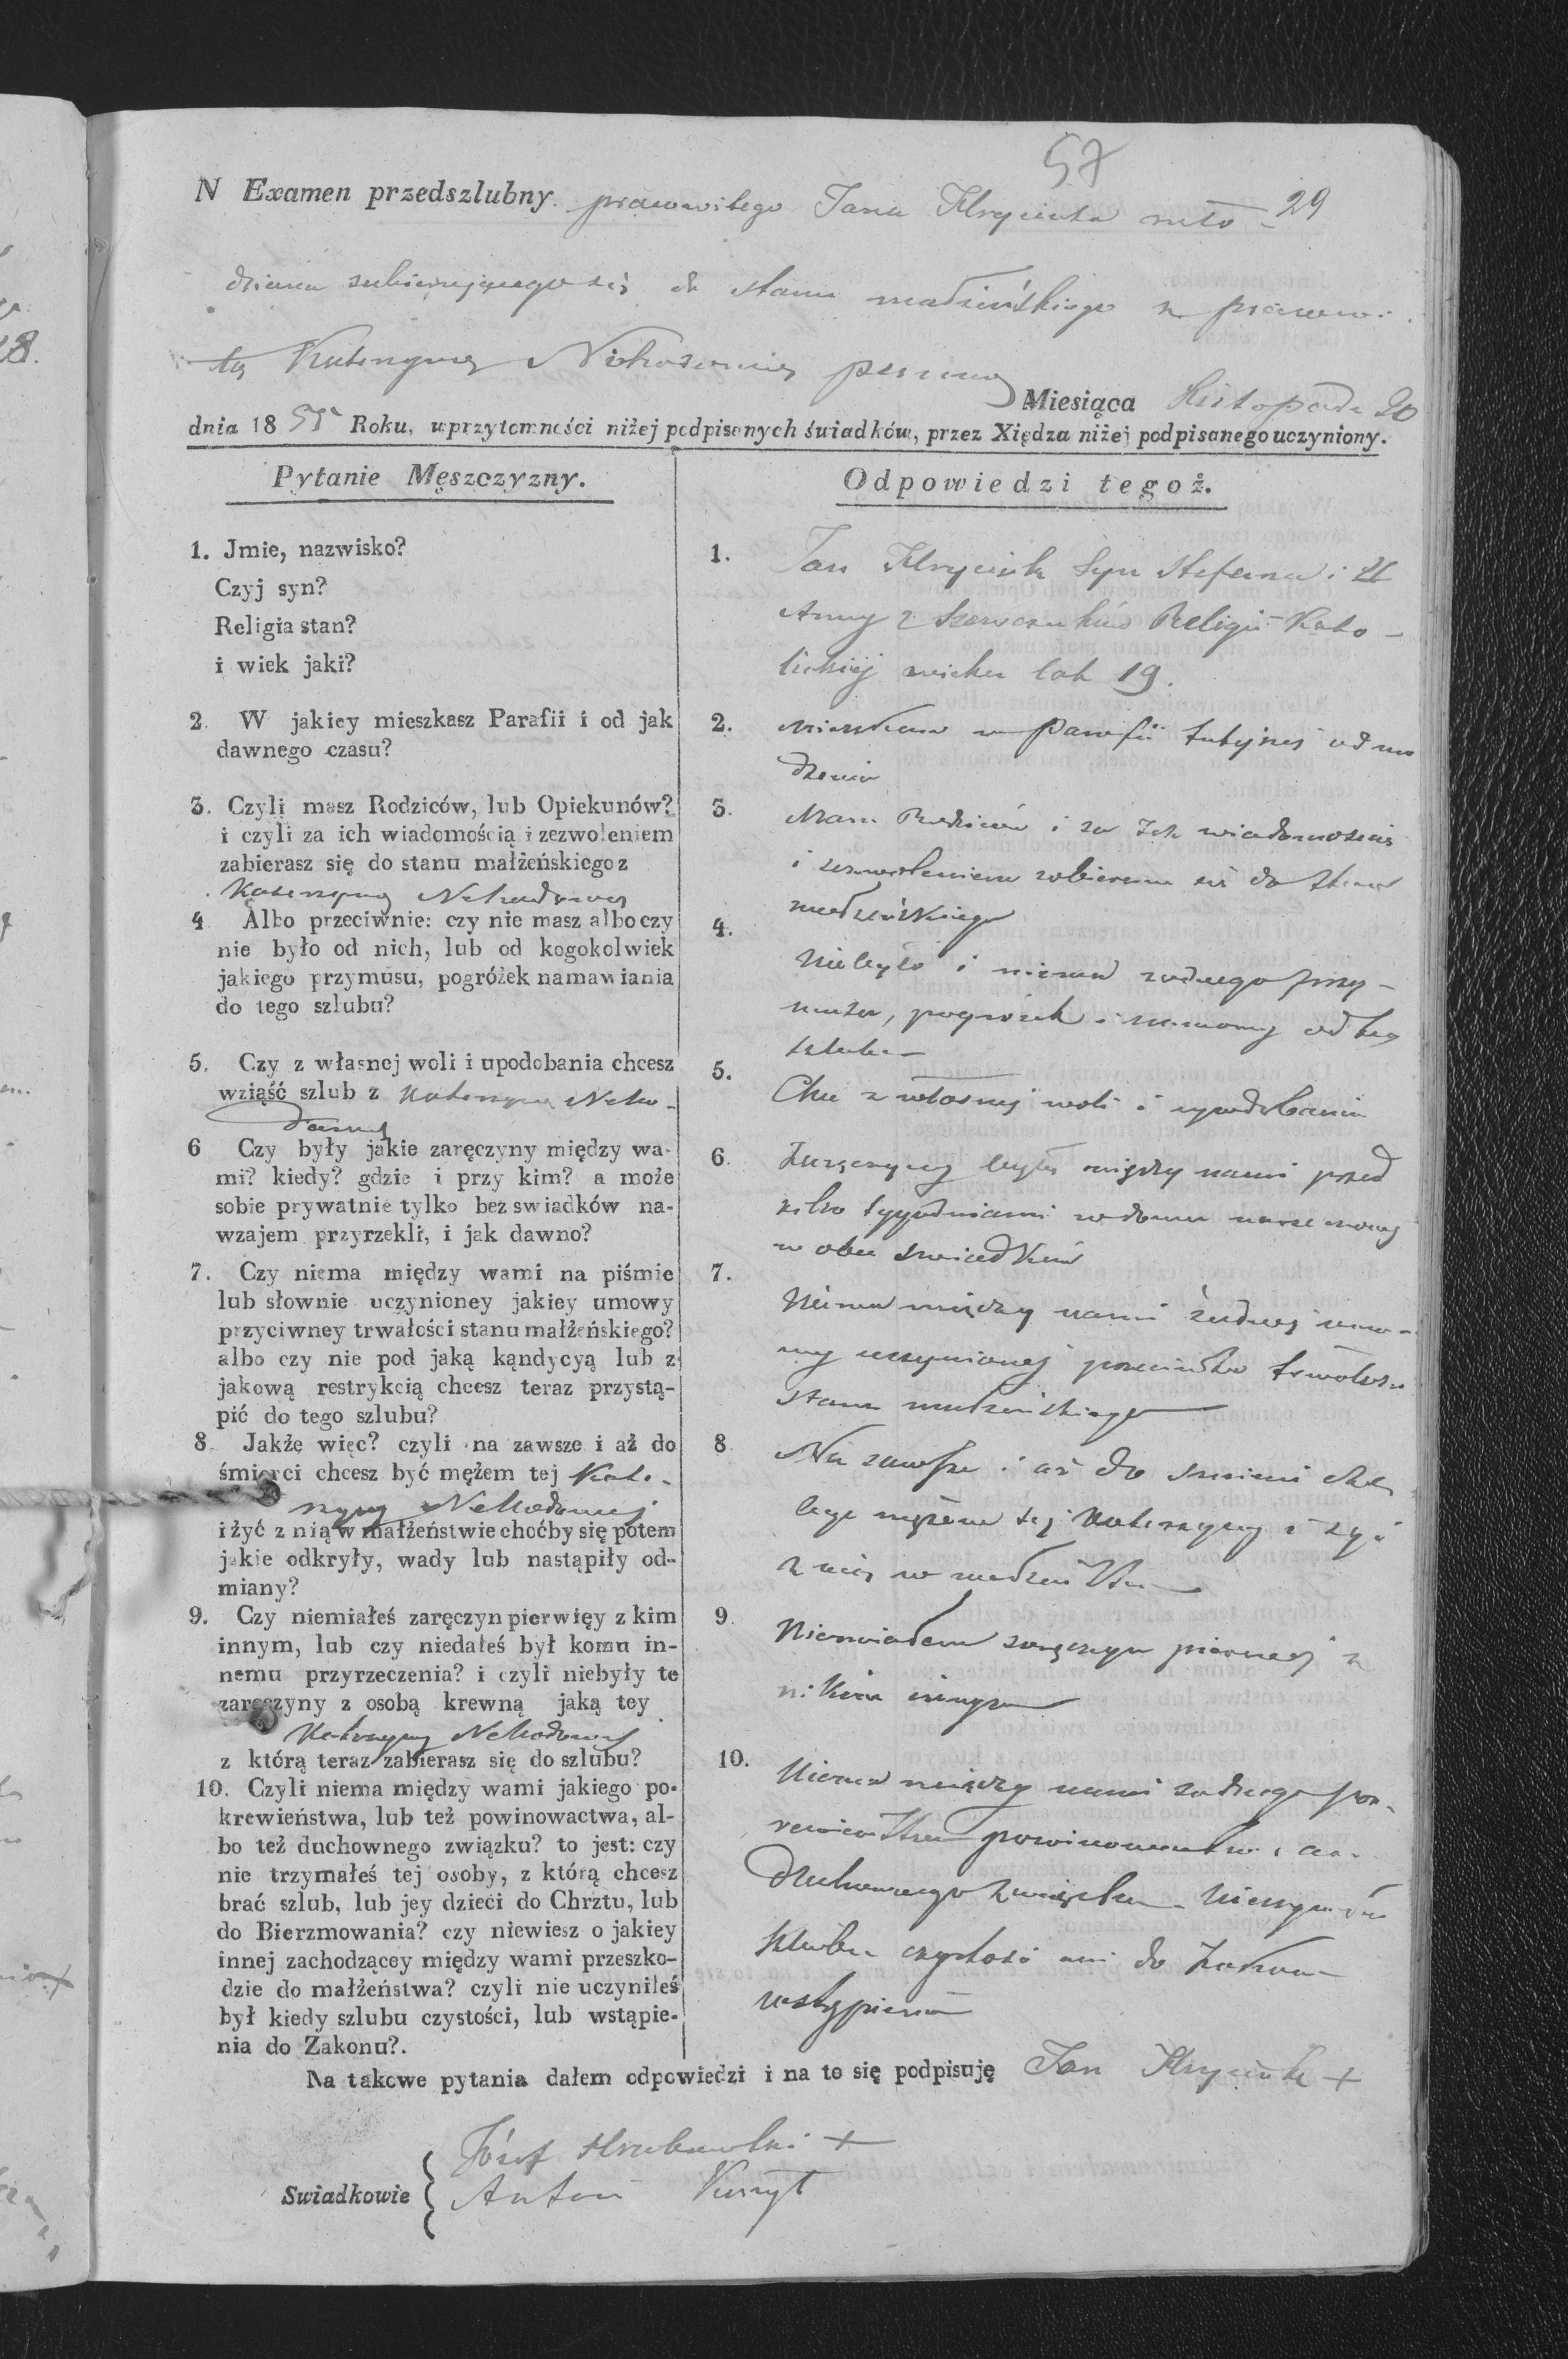 57
N Examen przedszlubny. prawowitego Jana Hryciuka mło- 29
dziana zabierającego się do stanu małżeńskiego z prawowi-
tą Katarzyną panną
Miesiąca Listopada 20
dnia 18 Roku, w przytomności niżej podpisanych świadków, przez Xiędza niżej podpisanego uczyniony.
Pytanie Męszczyzny.
1. Jmie, nazwisko?
Czyj syn?
Religia stan?
i wiek jaki?
2. W jakiey mieszkasz Parafii i od jak
dawnego czasu?
3. Czyli masz Rodziców, lub Opiekunów?
i czyli za ich wiadomością i zezwoleniem
zabierasz się do stanu małżeńskiego z
Katarzyną
4 Albo przeciwnie: czy nie masz albo czy
nie było od nich, lub od kogokolwiek
jakiego przymusu, pogróżek namawiania
do tego szlubu?
5. Czy z własnej woli i upodobania chcesz
wziąść szlub z Katarzyną
6 Czy były jakie zaręczyny między wa-
mi? kiedy? gdzie i przy kim? a może
sobie prywatnie tylko bez swiadków na-
wzajem przyrzekli, i jak dawno?
7. Czy niema między wami na piśmie
lub słownie uczynioney jakiey umowy
przyciwney trwałości stanu małżeńskiego?
albo czy nie pod jaką kąndycyą lub z
jakową restrykcią chcesz teraz przystą-
pić do tego szlubu?
8. Jakże więc? czyli na zawsze i aż do
śmierci chcesz być mężem tej Kata-
rzyny
i żyć z nią w małżeństwie choćby się potem
jakie odkryły, wady lub nastąpiły od-
miany?
9. Czy niemiałeś zaręczyn pierwięy z kim
innym, lub czy niedałeś był komu in-
nemu przyrzeczenia? i czyli niebyły te
zaręczyny z osobą krewną jaką tey
Katarzyny
z którą teraz zabierasz się do szlubu?
10. Czyli niema między wami jakiego po-
krewieństwa, lub też powinowactwa, al-
bo też duchownego związku? to jest: czy
nie trzymałeś tej osoby, z którą chcesz
brać szlub, lub jey dzieci do Chrztu, lub
do Bierzmowania? czy niewiesz o jakiey
innej zachodzącey między wami przeszko-
dzie do małżeństwa? czyli nie uczyniłeś
był kiedy szlubu czystości, lub wstąpie-
nia do Zakonu?.
Odpowiedzi tegoż.
1. Jan Hryciuk Syn Stefana i
Anny z Szewczuków Religii Kato-
lickiej wieku lat 19.
2. mieszkam w Parafii tutejszej od uro
dzenia
3. Mam Rodziców i za Ich wiadomością
i zezwoleniem zabieram się do stanu
małżeńskiego
4. Niebyło i niema żadnego przy-
musu, pogróżek i namowy od tego
szlubu
5. Chcę z własnej woli i upodobania
6. Zaręczyny były między nami przed
kilko tygodniami w domu narzeczonej
w obec świadków
7. Niema między nami żadnej umo-
wy uczynionej przeciwko trwałości
stanu małżeńskiego
8 Na zawsze i aż do śmierci chcę
być mężem tej Katarzyny i żyć
z nią w małżeństwie
9 Niemiałem zaręczyn pierwej z
nikim innym
10. Niema między nami żadnego po-
krewieństwa powinowactwa i ani
Duchownego Związku. Nieczyniłem
szlubu czystości ani do Zakonu
wstąpienia
Na takowe pytania dałem odpowiedzi i na to się podpisuję Jan Hryciuk +
Józef +
Swiadkowie Antoni